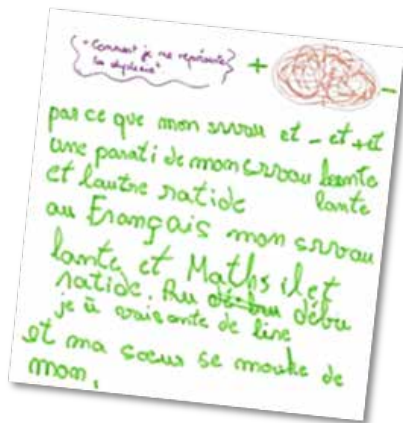 "Comment je me représente
la dyslexie".
+
-
par ce que mon srvau et - et + et
une parati de mon srvau lante
et lautre ratide
au Français mon srvau
lante et Maths il et
ratide. Au débu
je ü de lire
et ma sœur se moke de
mon.